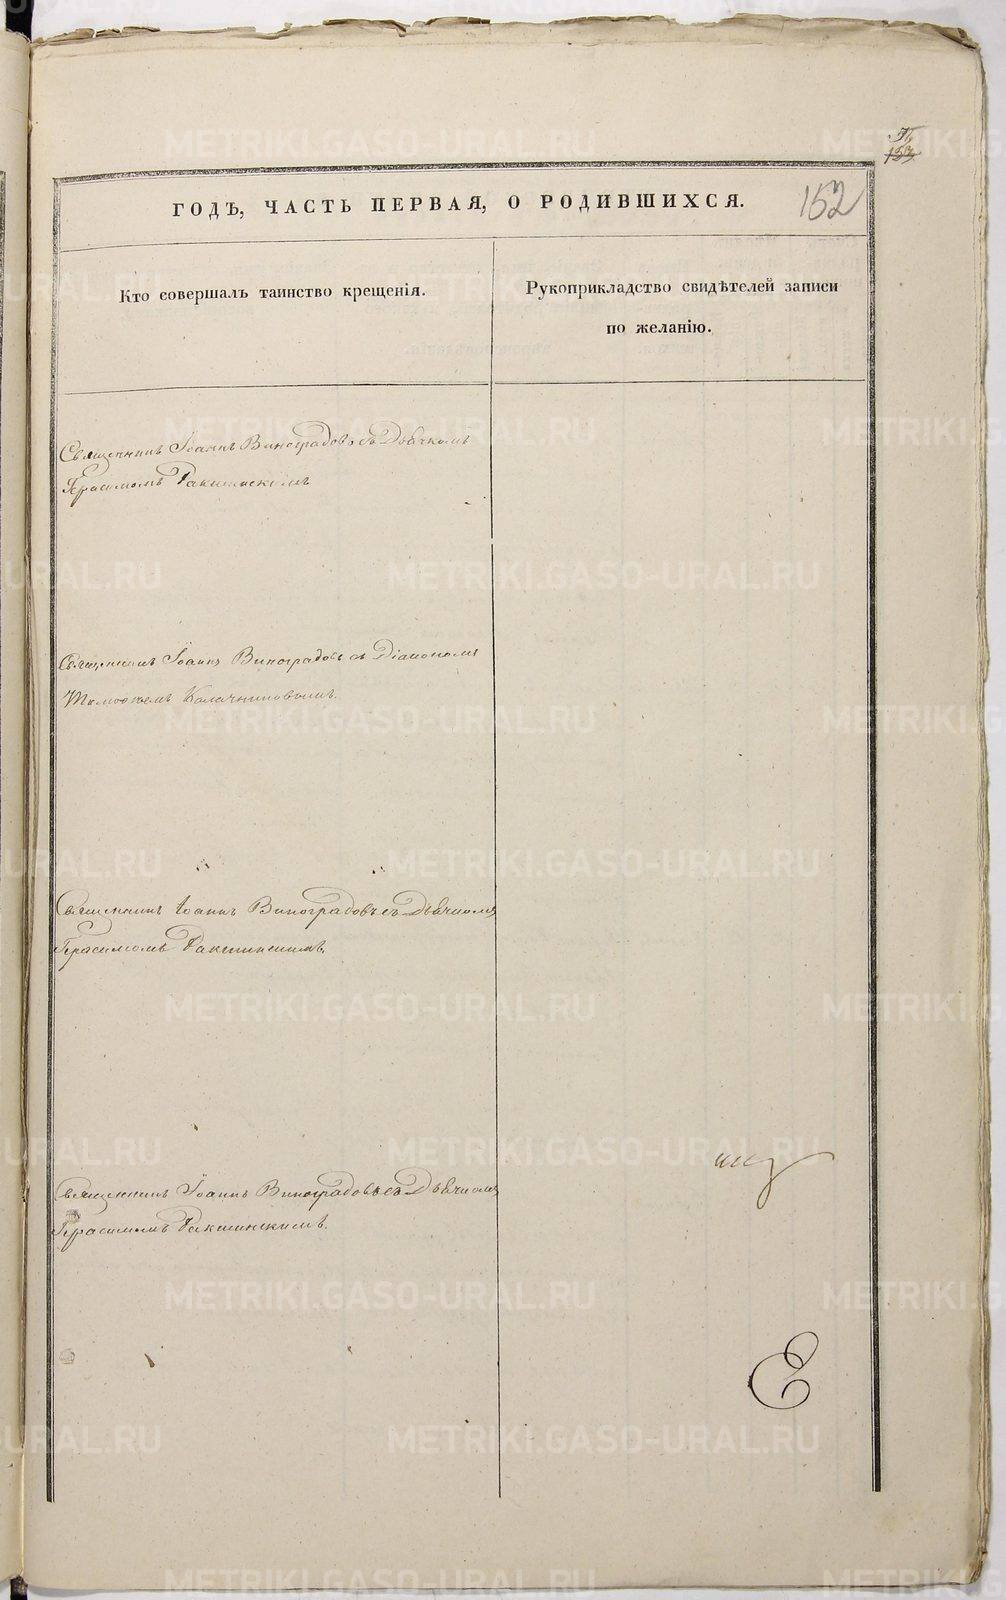 152
ГОДЪ, ЧАСТЬ ПЕРВАЯ, О РОДИВШИХСЯ.
Кто совершалъ таинство крещенія.
Рукоприкладство свидѣтелей записи
по желанію.
Священникъ Іоаннъ Виноградовъ съ Дьячкомъ
Герасимомъ
Священникъ Іоаннъ Виноградовъ съ Діакономъ
Тимофеемъ Калачниковымъ.
Священникъ Іоаннъ Виноградовъ съ Дьячкомъ
Герасимомъ
Священникъ Іоаннъ Виноградовъ съ Дьячкомъ
Герасимомъ
METRIKI.GASO-URAL.RU